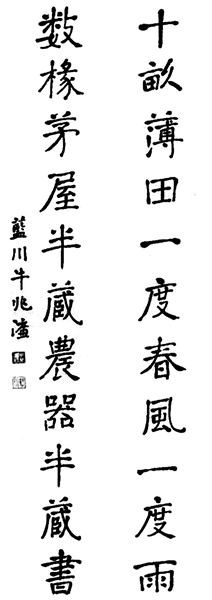 十畝薄田一度春風一度雨
數椽茅屋半藏農器半藏書
藍川牛兆濂